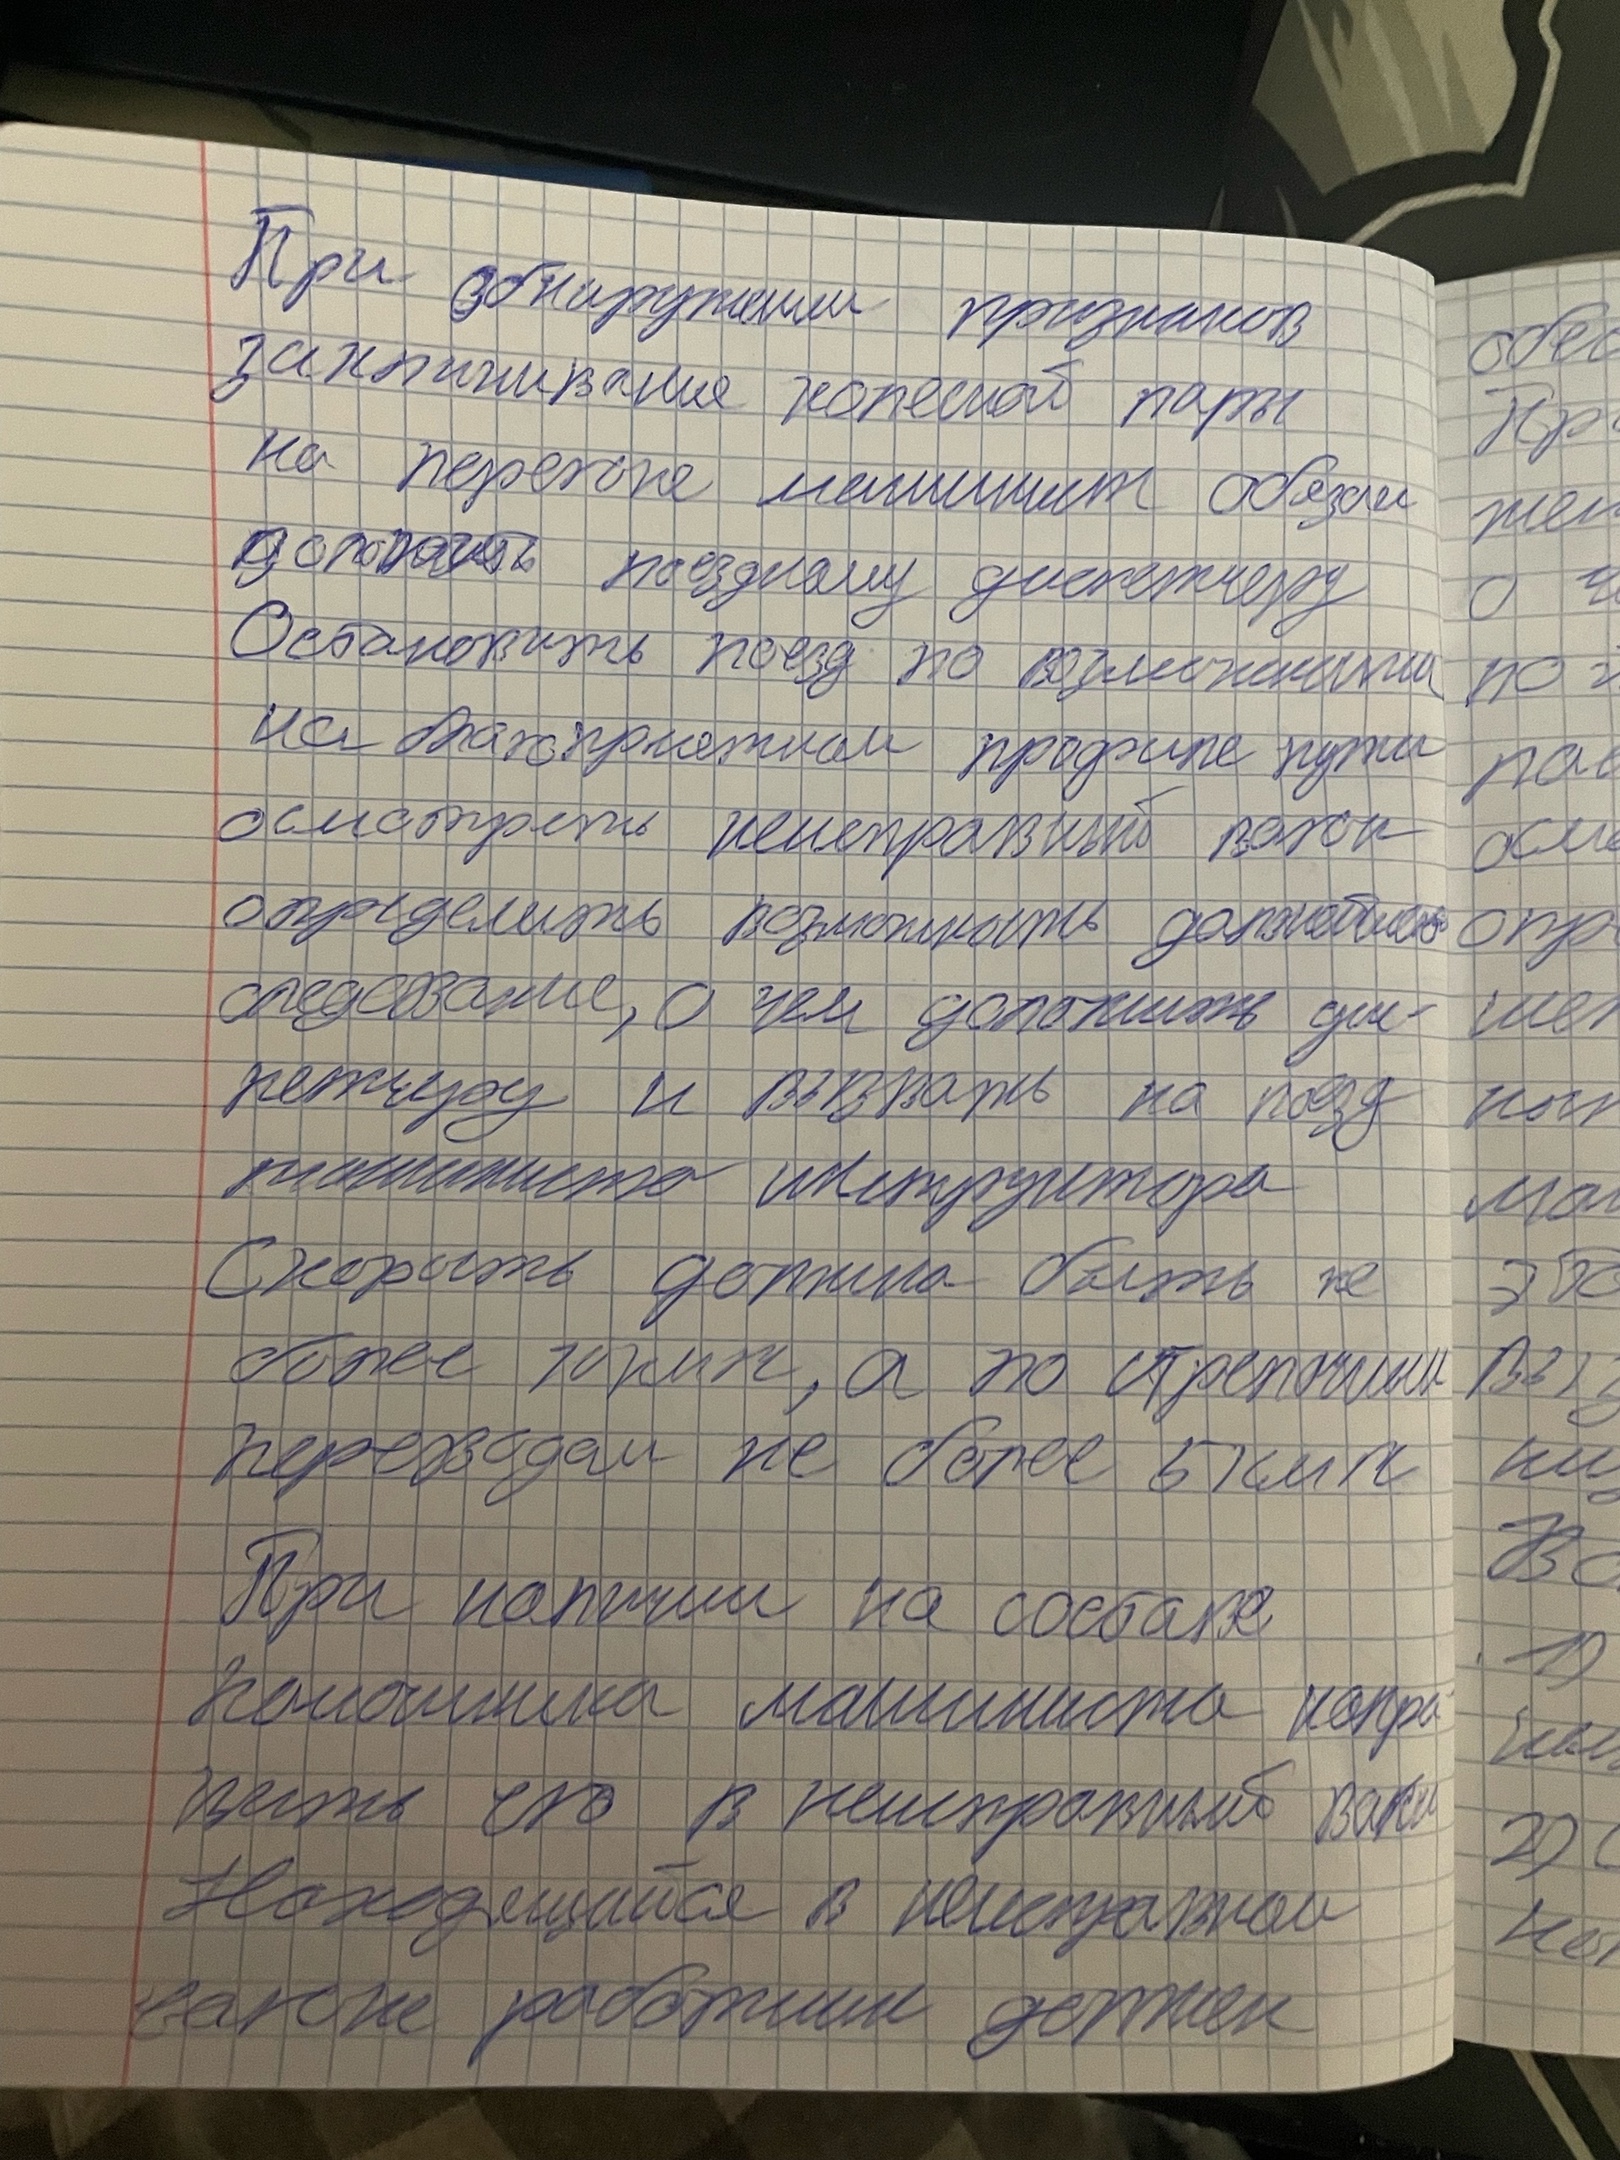 При обнаружении признаков
заклинивания колесной пары
на перегоне машинист обязан
доложить поездному диспетчеру
Остановить поезд по возможности
на благоприятном профиле пути
осмотреть неисправный вагон
определить возможность дальнейшего
следование, о чем доложить дис-
петчеру и вызвать на поезд
машиниста инструктора
Скорость должна быть не
более 10 км/ч, а по стрелочным
переводам не более 5 км/ч
При наличии на составе
помощника машиниста напра
вить его в неисправный вагон
Находящийся в неисправном
вагоне работник должен
обес
Пр
жен
о че
по
рас
осм
опр
шен
ма
это
выз
Во
1)
2) С